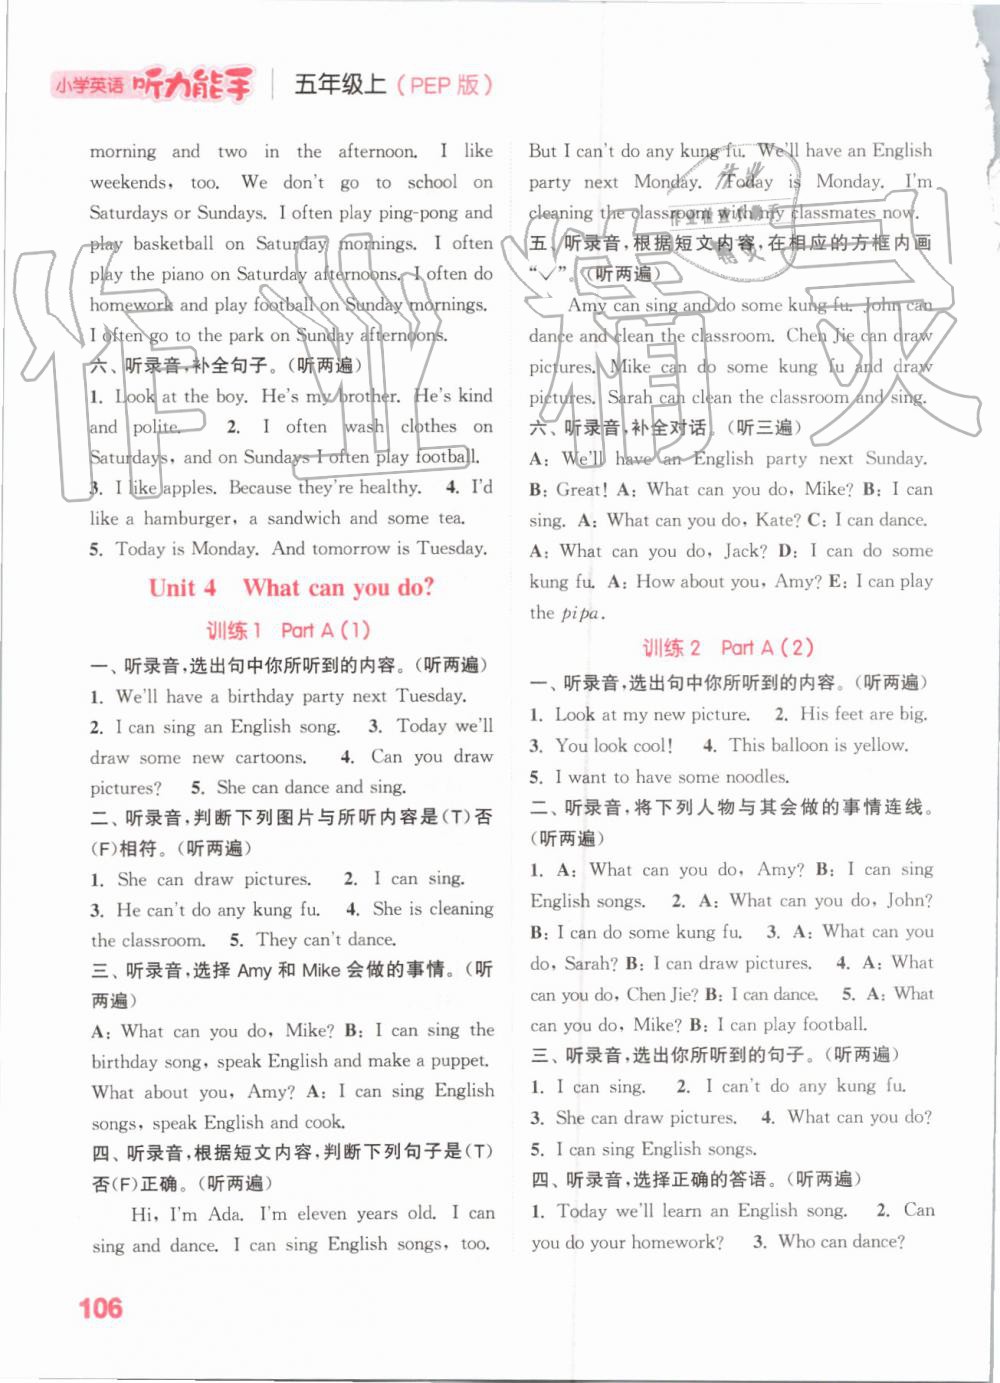 小学英语 听力能手 五年级上（PEP 版）
morning and two in the afternoon. I like
weekends, too. We don't go to school on
Saturdays or Sundays. I often play ping-pong and
play basketball on Saturday mornings. I often
play the piano on Saturday afternoons. I often do
homework and play football on Sunday mornings.
I often go to the park on Sunday afternoons.
六、听录音,补全句子。(听两遍)
1. Look at the boy. He's my brother. He's kind
and polite. 2. I often wash clothes on
Saturdays, and on Sundays I often play football.
3. I like apples. Because they're healthy. 4. I'd
like a hamburger, a sandwich and some tea.
5. Today is Monday. And tomorrow is Tuesday.
Unit 4 What can you do?
训练1 Part A(1)
一、听录音,选出句中你所听到的内容。(听两遍)
1. We'll have a birthday party next Tuesday.
2. I can sing an English song. 3. Today we'll
draw some new cartoons. 4. Can you draw
pictures? 5. She can dance and sing.
二、听录音,判断下列图片与所听内容是(T)否
(F)相符。(听两遍)
1. She can draw pictures. 2. I can sing.
3. He can't do any kung fu. 4. She is cleaning
the classroom. 5. They can't dance.
三、听录音,选择 Amy 和 Mike 会做的事情。(听
两遍)
A: What can you do, Mike? B: I can sing the
birthday song, speak English and make a puppet.
What about you, Amy? A: I can sing English
songs, speak English and cook.
四、听录音,根据短文内容,判断下列句子是(T)
否(F)正确。(听两遍)
Hi, I'm Ada. I'm eleven years old. I can
sing and dance. I can sing English songs, too.
But I can't do any kung fu. We'll have an English
party next Monday. Today is Monday. I'm
cleaning the classroom with my classmates now.
五、听录音,根据短文内容,在相应的方框内画
“✓”。(听两遍)
Amy can sing and do some kung fu. John can
dance and clean the classroom. Chen Jie can draw
pictures. Mike can do some kung fu and draw
pictures. Sarah can clean the classroom and sing.
六、听录音,补全对话。(听三遍)
A: We'll have an English party next Sunday.
B: Great! A: What can you do, Mike? B: I can
sing. A: What can you do, Kate? C: I can dance.
A: What can you do, Jack? D: I can do some
kung fu. A: How about you, Amy? E: I can play
the pipa.
训练2 Part A(2)
一、听录音,选出句中你所听到的内容。(听两遍)
1. Look at my new picture. 2. His feet are big.
3. You look cool! 4. This balloon is yellow.
5. I want to have some noodles.
二、听录音,将下列人物与其会做的事情连线。
(听两遍)
1. A: What can you do, Amy? B: I can sing
English songs. 2. A: What can you do, John?
B: I can do some kung fu. 3. A: What can you
do, Sarah? B: I can draw pictures. 4. A: What
can you do, Chen Jie? B: I can dance. 5. A: What
can you do, Mike? B: I can play football.
三、听录音,选出你所听到的句子。(听两遍)
1. I can sing. 2. I can't do any kung fu.
3. She can draw pictures. 4. What can you do?
5. I can sing English songs.
四、听录音,选择正确的答语。(听两遍)
1. Today we'll learn an English song. 2. Can
you do your homework? 3. Who can dance?
106
作业精灵